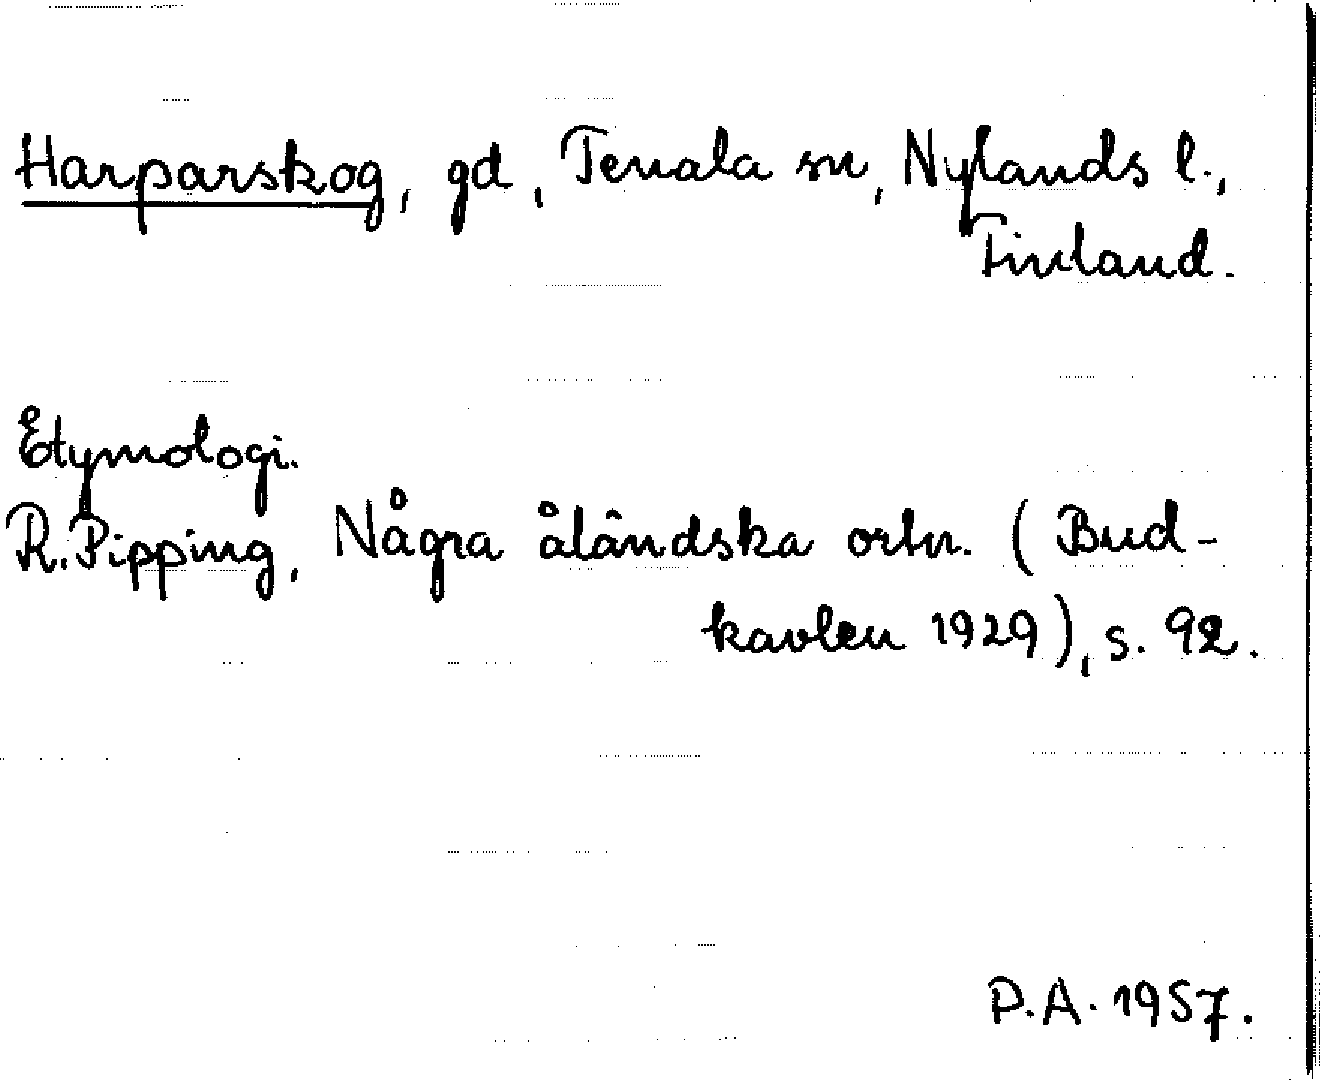 Harparskog, gd, Tenala sn, Nylands l.,
Finland.
Etymologi.
R. Pipping, Några åländska ortn. (Bud-
kavlen 1929), s. 92.
P.A. 1957.